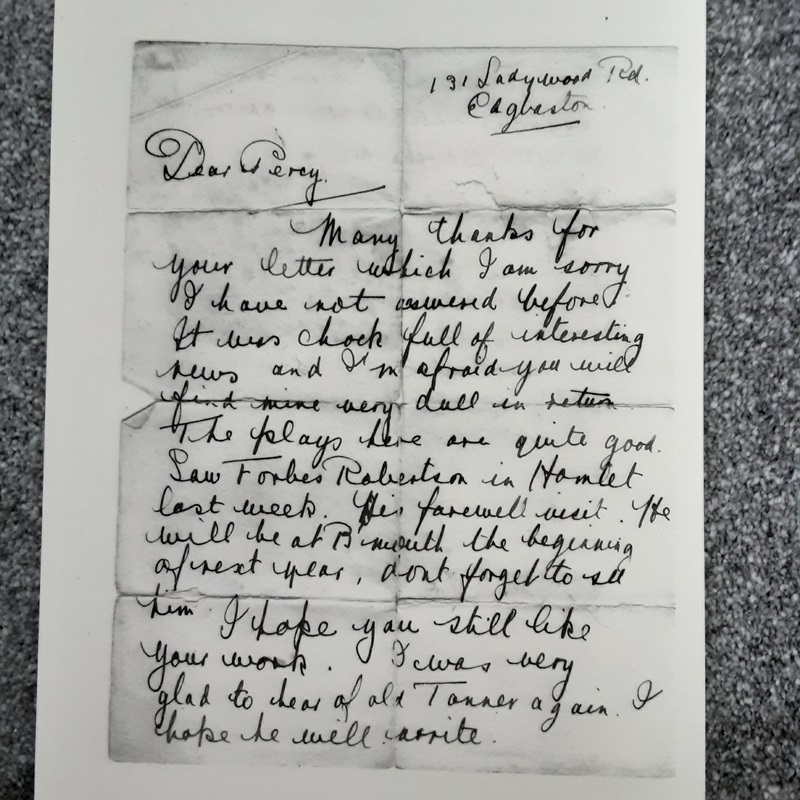 131 Ladywood Rd.
Edgbaston.
Dear Percy.
Many thanks for
your letter which I am sorry
I have not aswered before
It was chock full of interesting
news and I'm afraid you will
find mine very dull in return
The plays here are quite good.
Saw Forbes Robertson in Hamlet
last week. His farewell visit. He
will be at B'mouth the beginning
of next year, dont forget to see
him I hope you still like
your work. I was very
glad to hear of old Tanner again. I
hope he will write.